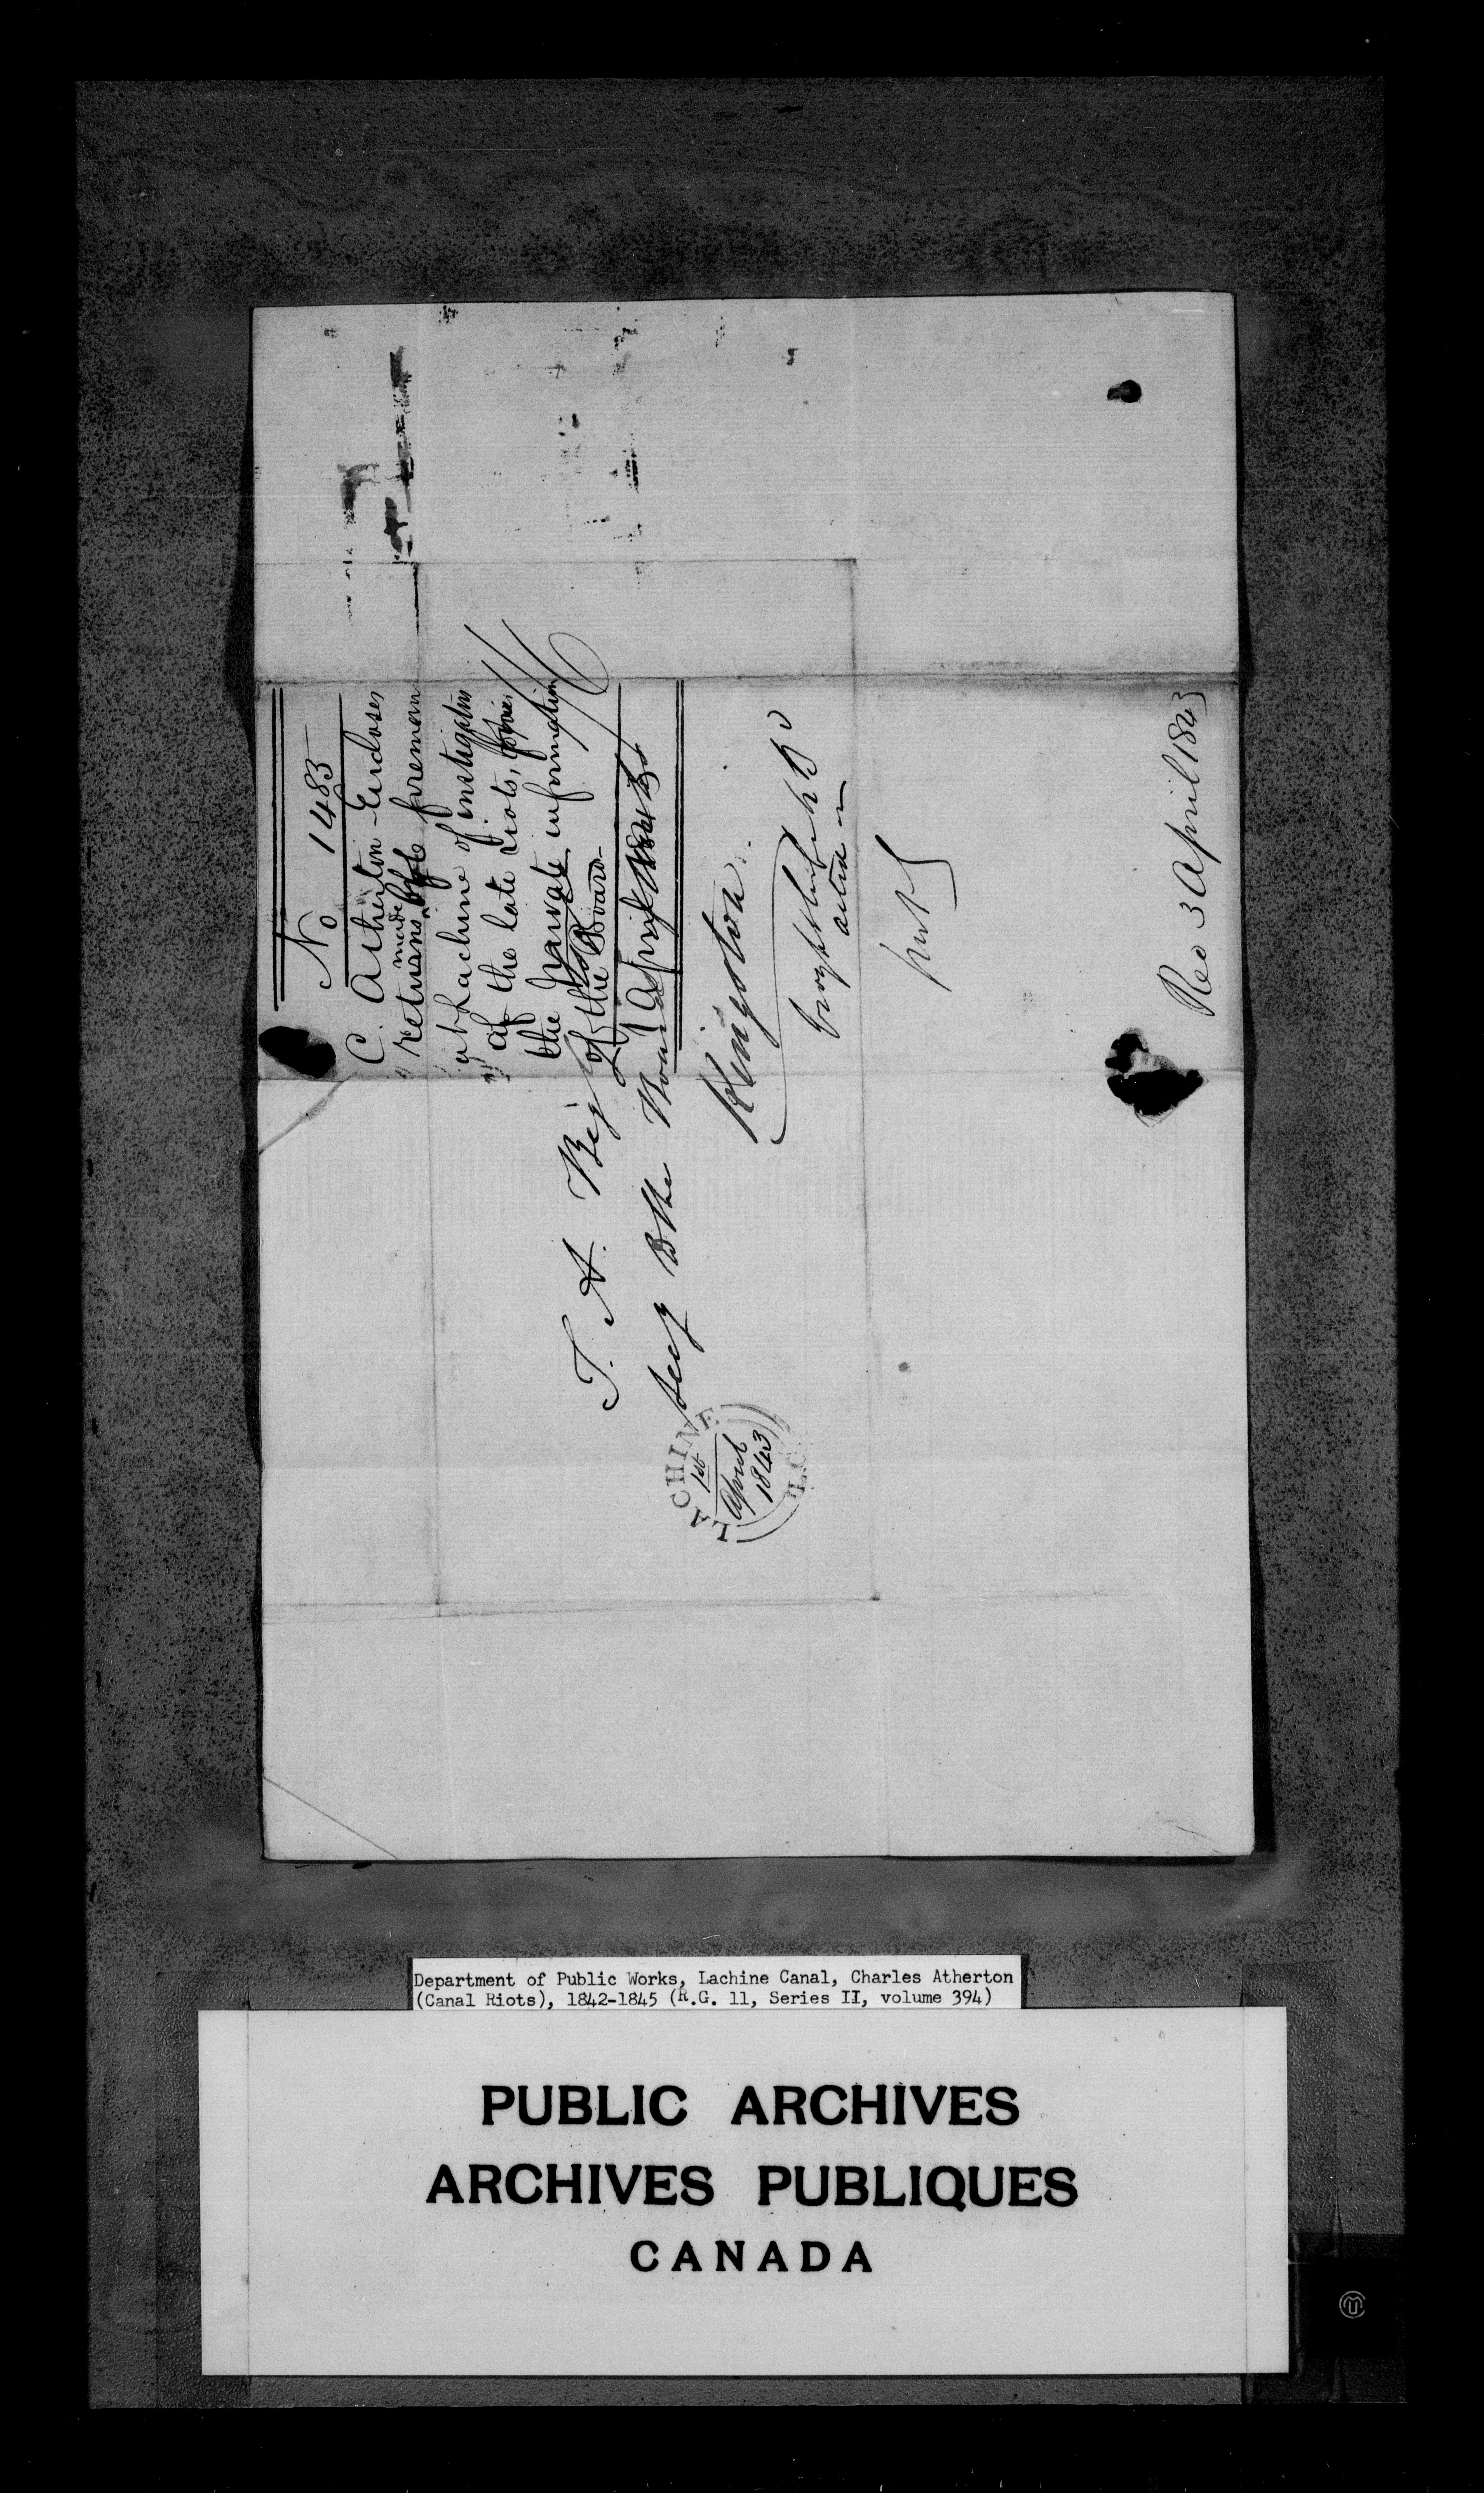 No 1483
C. Atherton - Encloses
returns made by foremen
at Lachine of instigators
of the late riots, for
the private information
of the Board
1 April 1843
T. A. Begly
Secy B the Board
Kingston
LACHINE
1st
April
1843
Rec 3 April 1843
Department of Public Works, Lachine Canal, Charles Atherton
(Canal Riots), 1842-1845 (R.G. 11, Series II, volume 394)
PUBLIC ARCHIVES
ARCHIVES PUBLIQUES
CANADA